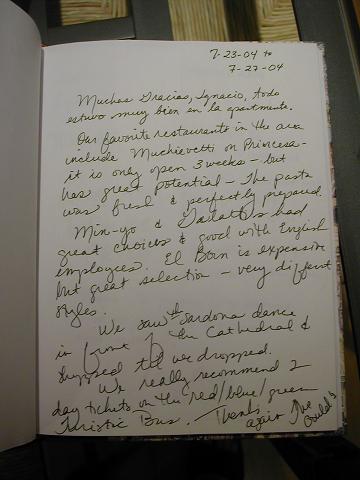 7-23-04 to
7-27-04
Muchas Gracias, Ignacio, todo
estuvo muy bien en la apartmente.
Our favorite restaurants in the area
include Muchievetti on Princesa -
it is only open 3 weeks - but
has great potential - The pasta
was fresh & perfectly prepared.
Min-yo & had
great choices & good with English
employees. El Born is expensive
but great selection - very diffent
styles.
We saw the Sardona dance
in front of the Cathedral &
shopped til we dropped.
We really recommend 2
day tickets on the red/blue/green
Turistic Bus. Thanks
again The